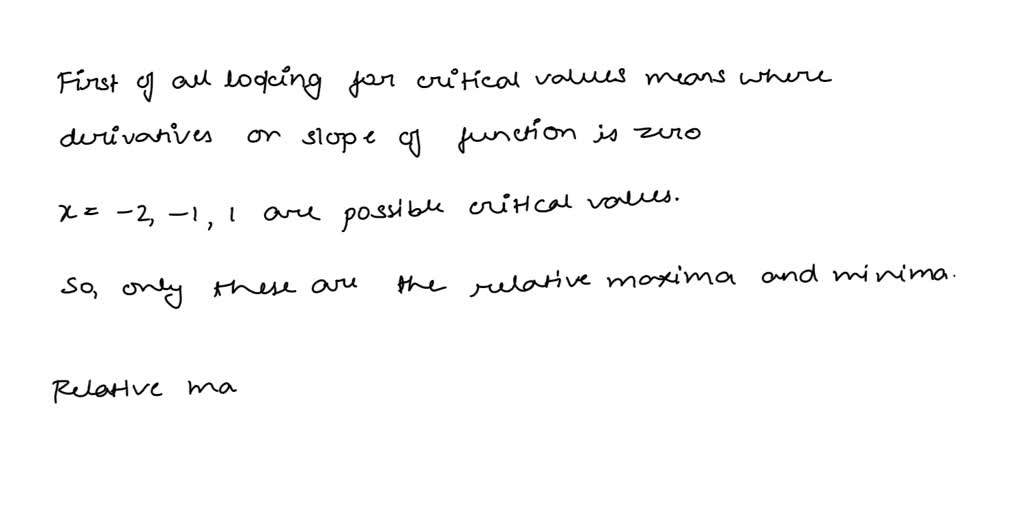 First of all looking for critical values means where
derivatives or slope of function is zero
x = -2, -1, 1 are possible critical values.
So, only these are the relative maxima and minima.
Relative ma